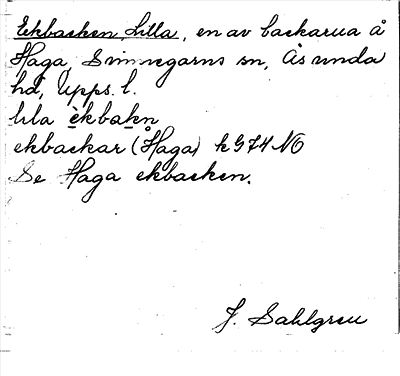 Ekbacken, Lilla, en av backarna å
Haga Simmegarns sn, Åsunda
hd, Upps. l.
lila èkbakn
ekbackar (Haga) k G74 NO
Se Haga ekbacken.
J. Sahlgren